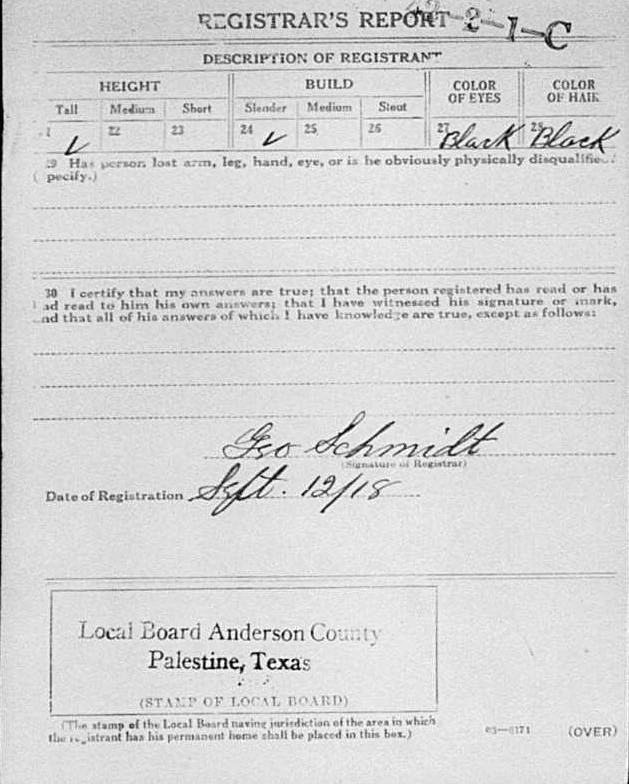 REGISTRAR'S REPORT
42-2-1-C
DESCRIPTION OF REGISTRANT
HEIGHT BUILD COLOR OF EYES COLOR OF HAIR
Tall Medium Short Slender Medium Stout
22 23 24 25 26 27 Black 28 Black
✓ ✓
29 Has person lost arm, leg, hand, eye, or is he obviously physically disqualified?
(pecify.)
30 I certify that my answers are true; that the person registered has read or has
had read to him his own answers; that I have witnessed his signature or mark,
and that all of his answers of which I have knowledge are true, except as follows:
Geo Schmidt
(Signature of Registrar)
Date of Registration Sept. 12/18
Local Board Anderson County
Palestine, Texas
(STAMP OF LOCAL BOARD)
(The stamp of the Local Board having jurisdiction of the area in which
the registrant has his permanent home shall be placed in this box.)
03—6171 (OVER)